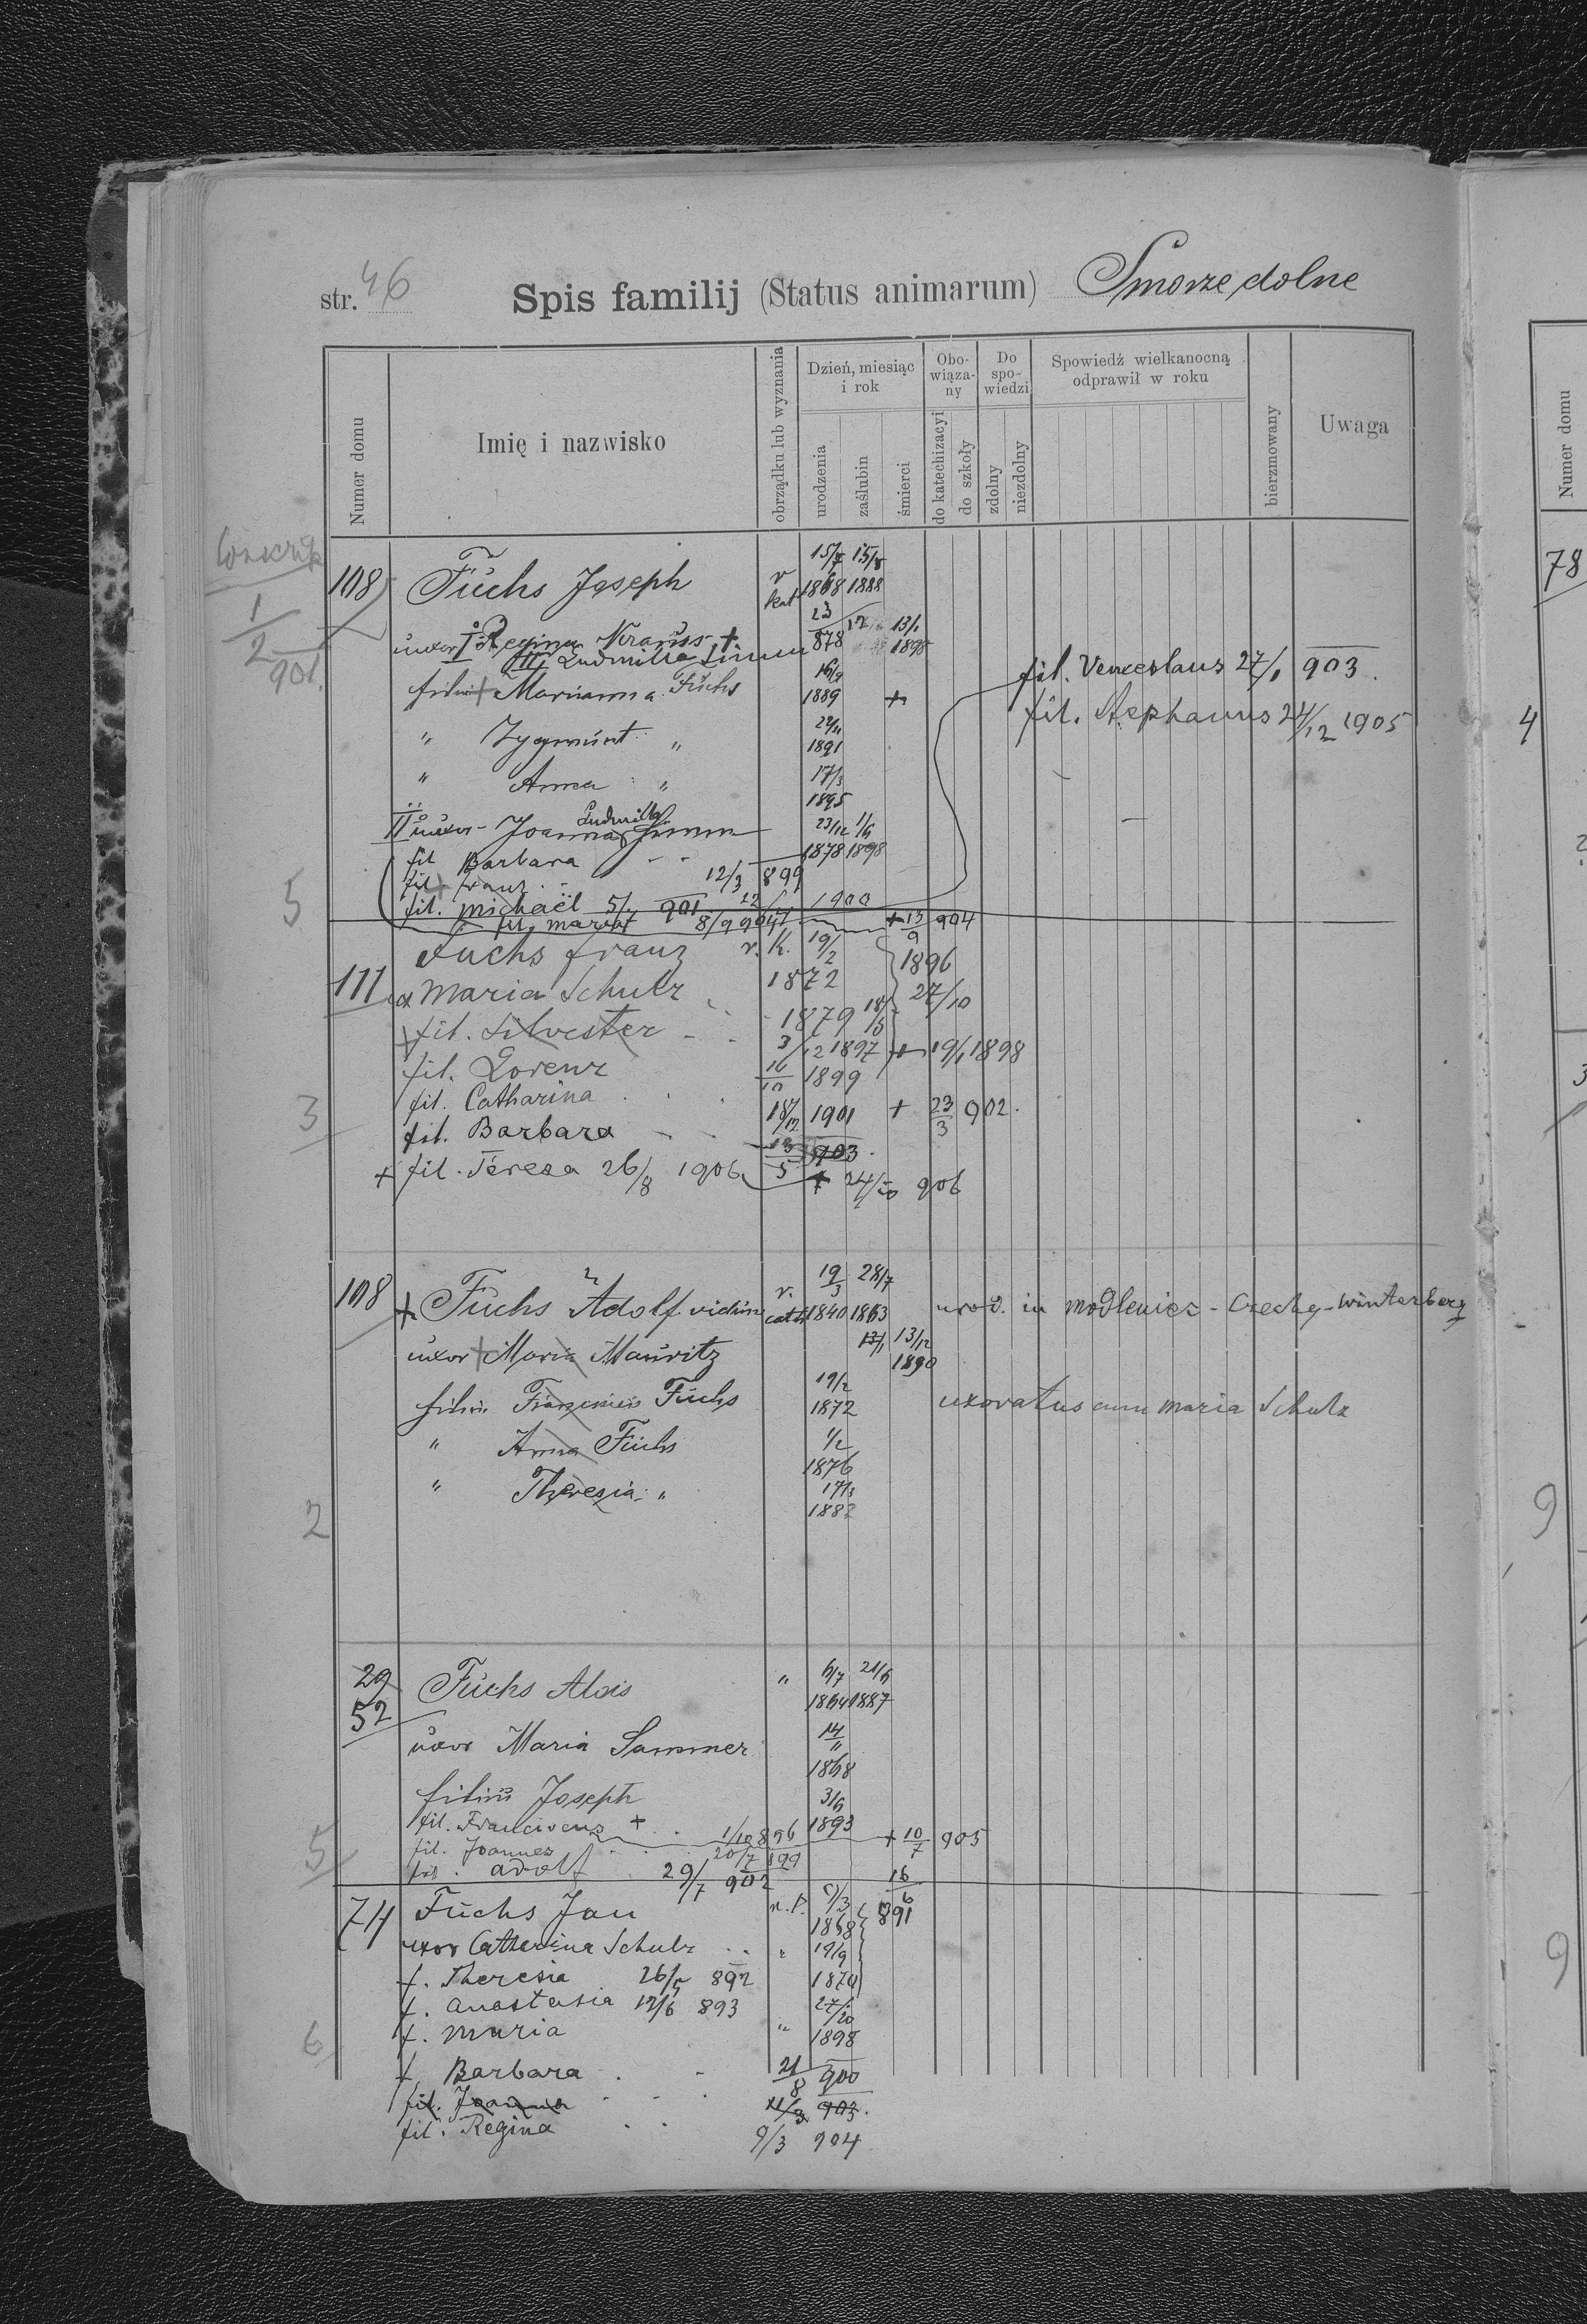 str. 46
Spis familij (Status animarum) Smorze dolne
Numer domu
Imię i nazwisko
obrządku lub wyznania
Dzień, miesiąc i rok
urodzenia
zaślubin
śmierci
Obowiązany
do katechizacyi
do szkoły
Do spowiedzi
zdolny
niezdolny
Spowiedź wielkanocną odprawił w roku
bierzmowany
Uwaga
1/2 901.
15/7 15/8
108 Fuchs Joseph r kat 1868 1888
uxor I Regina Krauss + 23/12 878 13/1 1898
III Ludmilla
filia + Marianna Fuchs 16/9 1889 +
fil. Venceslaus 27/1 903.
fil. Stephanus 24/12 1905
" Zygmunt " 24/11 1891
" Anna " 17/3 1895
II uxor - Joanna Ludmilla 23/12 1878 1/6 1898
fil Barbara - - 12/3 899
fil. franz 1900
5
fil. Michaël 5/1 901
fil. maria 8/9 904 + 13/9 904
Fuchs franz r. K. 19/2 1872 1896 27/10
111 ux Maria Schulz 1879 18/5
fil. Silvester - - 3/12 1897 + 19/1 1898
fil. Lorenz 16/10 1899
3
fil. Catharina . . . 18/12 1901 + 23/3 902.
fil. Barbara - - 13/5 903.
+ fil. Teresa 26/8 1906 + 24/10 906
19/3 28/7
108 + Fuchs Adolf viduus r. cath 1840 1863 urod. in Modleniez - Czechy - Winterberg
uxor + Maria Mauritz 13/1 13/12 1890
filius Franciscus Fuchs 19/2 1872 uxoratus cum maria Schulz
" Anna Fuchs 1/2 1876
" Theresia " 17/3 1882
2
29
52
Fuchs Alois " 6/7 1864 21/6 1887
uxor Maria Sammer 14/11 1868
filius Joseph 3/6 1893
fil. Franciscus + . 1/10 896 + 10/7 905
5
fil. Joannes . . . 20/7 899
fil. adolf 29/7 902
74 Fuchs Jan 5/3 1868 16/6 891
uxor Catherina Schulz . . " 19/9 1870
f. Theresia 26/5 892
f. Anastasia 12/6 893
f. maria " 27/10 1898
6
f. Barbara . - 21/8 900
fil. Joanna - - - 903.
fil. Regina . . 9/3 904
Numer domu
78
4
3
9
9